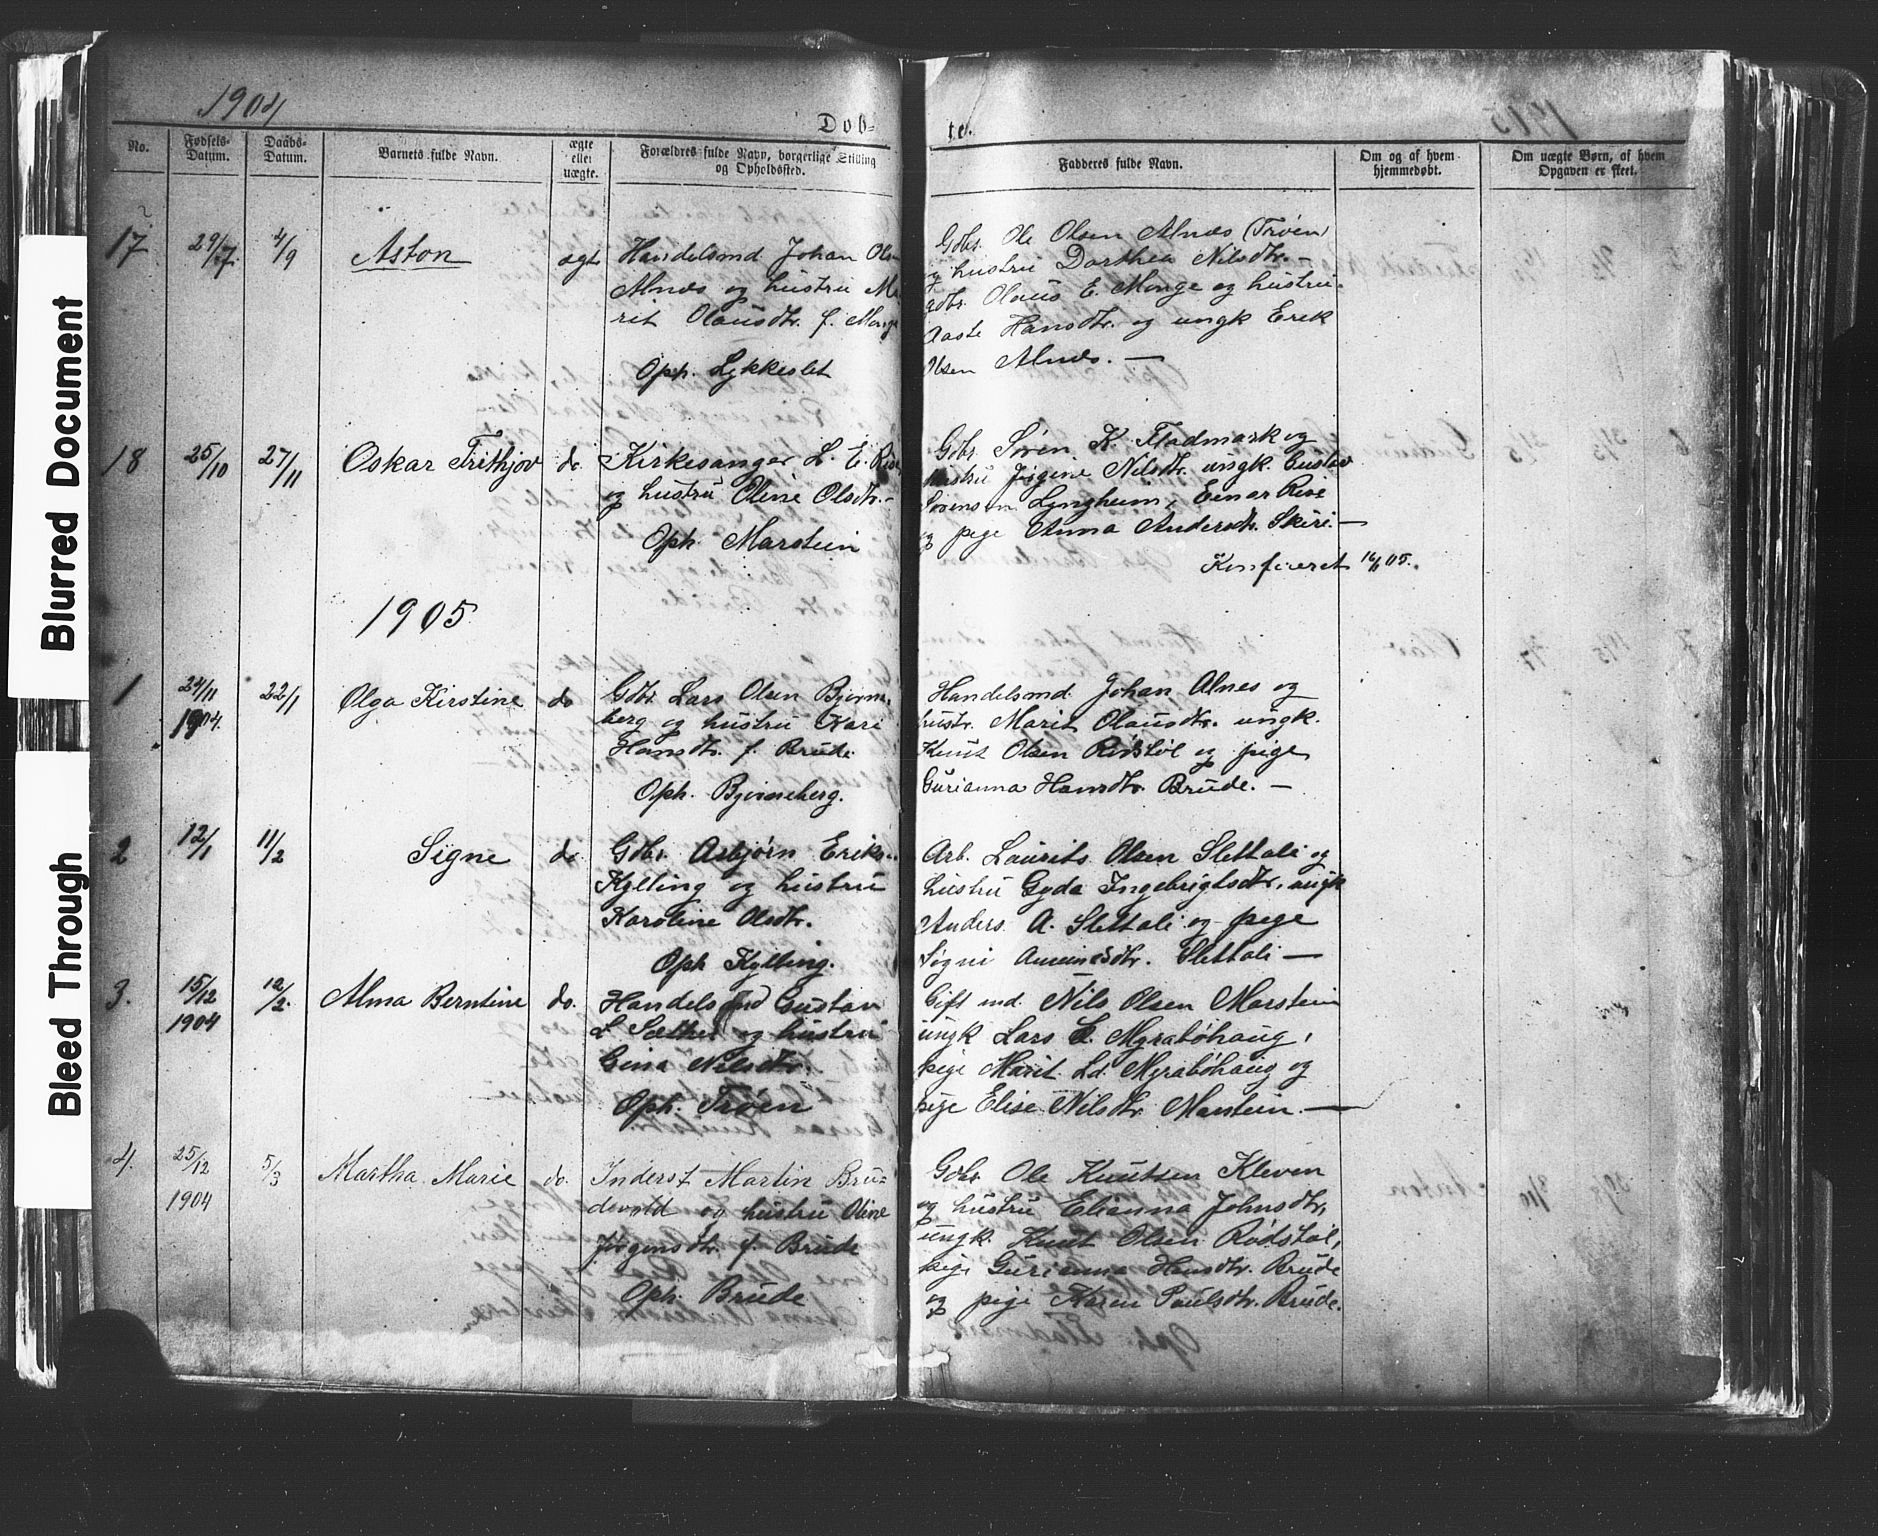 Blurred Document
Bleed Through
1904
Døb-
te.
1905
No.
Fødsels-Datum.
Daabs-Datum.
Barnets fulde Navn.
ægte eller uægte.
Forældres fulde Navn, borgerlige Stilling og Opholdssted.
Fadderes fulde Navn.
Om og af hvem hjemmedøbt.
Om uægte Børn, af hvem Opgaven er skeet.
17 29/7. 4/9 Aston ægt
Handelsmd. Johan Ols-
Alnæs og hustru Ma-
rit Olausdtr. f. Monge
Oph. Lykkeslet
Gdbr. Ole Olsen Alnæs (Trøen)
og hustru Dorthea Nilsdtr. —
gdbr. Olaus E. Monge og hustru
Aaste Hansdtr. og ungk Erik
Olsen Alnæs. —
18 25/10 27/11 Oskar Trithjov do
Kirkesanger L. E. Rise
og hustru Oline Olsdtr. —
Oph. Marstein
Gdbr. Søren K. Fladmark og
hustru Jørgine Nilsdtr. ungk. Gustav
Sørensen Lyngheim, Einar Rise
og pige Anna Andersdtr. Skiri. —
Konfireret 05.
1905
1 24/11 1904. 22/1 Olga Kirstine do
Gdbr. Lars Olsen Bjørne-
berg og hustru Kari
Hansdtr. f. Brude
Oph. Bjørneberg.
Handelsmd. Johan Alnes og
hustr. Marit Olausdtr. ungk.
Knut Olsen Rødstøl og pige
Gurianna Hansdtr. Brude. —
2 12/1 11/2 Signe do
Gdbr. Asbjørn Eriks.
Kylling og hustru
Karoline Olsdtr.
Oph Kylling.
Arb. Laurits Olsen Slettali og
hustru Gyda Ingebrigtsdtr, ungk
Anders A. Slettali og pige
Signi Slettali —
3. 15/12 1904 12/2. Alma Berntine do.
Handelsmd Gustav
L Sæther og hustru
Gina Nilsdtr.
Oph. Trøen
Gift md. Nils Olsen Marstein
ungk Lars L. Myrabøhaug,
pige Marit Ld. Myrabøhaug og
pige Elise Nilsdtr. Marstein. —
4. 25/12 1904 5/3 Martha Marie do.
Inderst Martin Bru-
devold og hustru Oline
Jørgensdtr. f. Brude
Oph. Brude
Gdbr. Ole Knutsen Kleven
og hustru Elianna Johnsdtr,
ungk. Knut Olsen Rødstøl,
pige Gurianna Hansdtr. Brude
og pige Karen Paulsdtr. Brude.